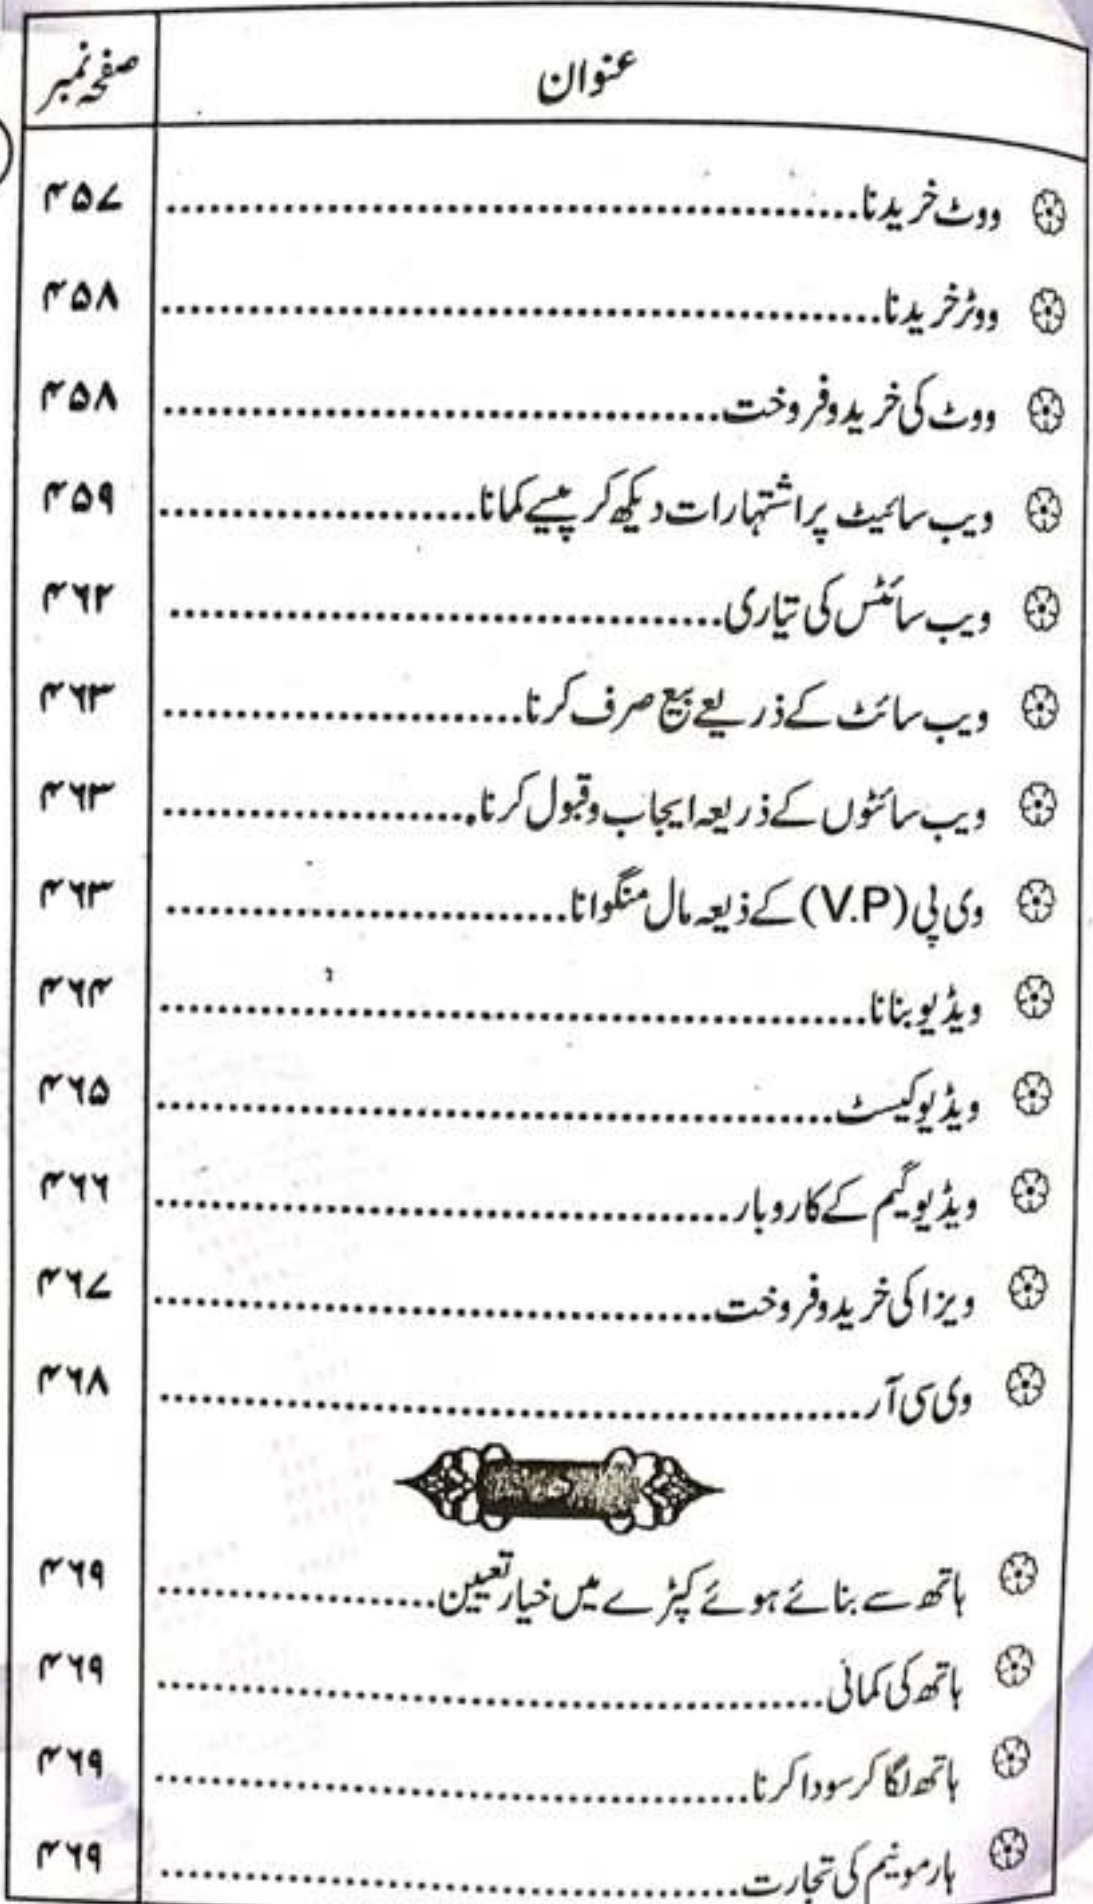 عنوان صفحہ نمبر
ووٹ خریدنا ۴۵۷
ووٹر خریدنا ۴۵۸
ووٹ کی خرید و فروخت ۴۵۸
ویب سائیٹ پر اشتہارات دیکھ کر پیسے کمانا ۴۵۹
ویب سائٹس کی تیاری ۴۶۲
ویب سائٹ کے ذریعے بیع صرف کرنا ۴۶۳
ویب سائٹوں کے ذریعہ ایجاب و قبول کرنا ۴۶۳
وی پی (V.P) کے ذیعہ مال منگوانا ۴۶۳
ویڈیو بنانا ۴۶۴
ویڈیو کیسٹ ۴۶۵
ویڈیو گیم کے کاروبار ۴۶۶
ویزا کی خرید و فروخت ۴۶۷
وی سی آر ۴۶۸
ہاتھ سے بنائے ہوئے کپڑے میں خیار تعیین ۴۶۹
ہاتھ کی کمائی ۴۶۹
ہاتھ لگا کر سودا کرنا ۴۶۹
ہارمونیم کی تجارت ۴۶۹